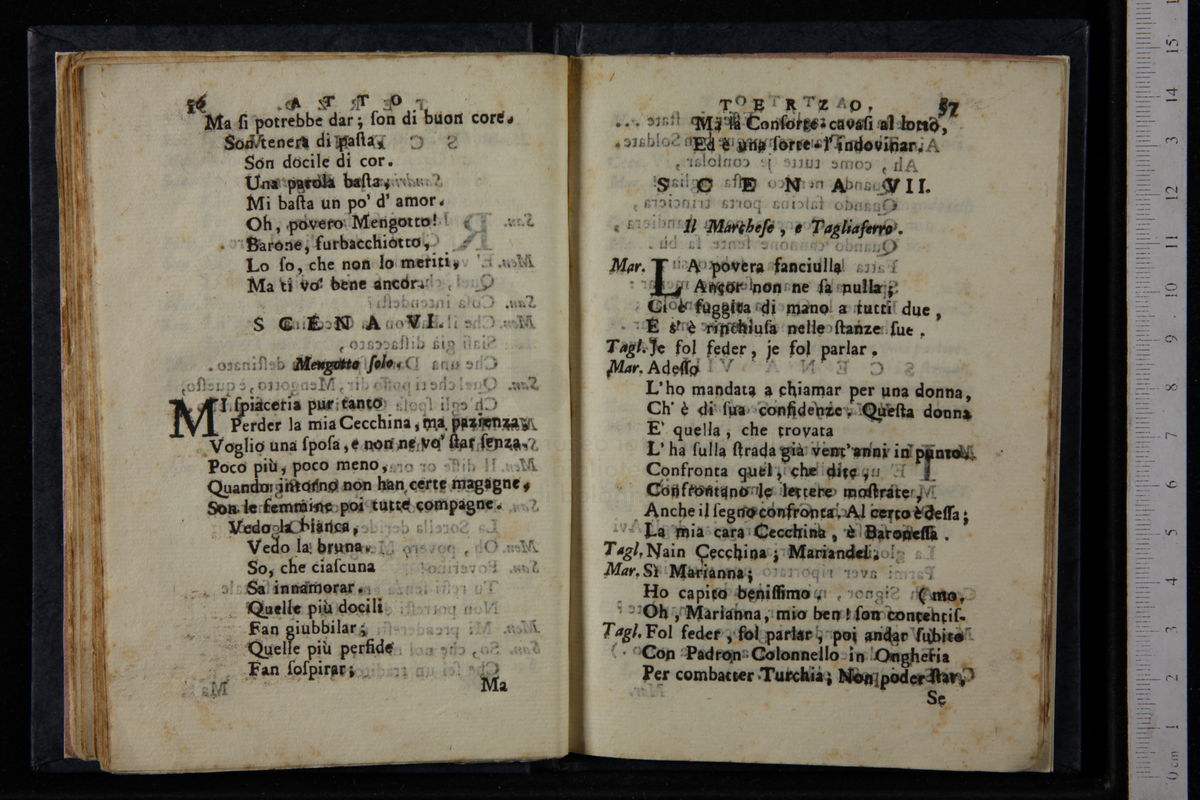 56 ATTO
Ma ſi potrebbe dar; ſon di buon core.
Son tenera di paſta,
Son docile di cor.
Una parola baſta;
Mi baſta un po' d' amor.
Oh, povero Mengotto!
Barone, furbacchiotto,
Lo ſo, che non lo meriti,
Ma ti vo' bene ancor.
SCENA VI.
Mengotto ſolo.
MI ſpiaceria pur tanto
Perder la mia Cecchina, ma pazienza,
Voglio una ſpoſa, e non ne vo' ſtar ſenza.
Poco più, poco meno,
Quando intorno non han certe magagne,
Son le femmine poi tutte compagne.
Vedo la bianca,
Vedo la bruna.
So, che ciaſcuna
Sa innamorar.
Quelle più docili
Fan giubbilar;
Quelle più perfide
Fan ſoſpirar;
Ma
TERZO. 57
Ma la Conſorte cavaſi al lotto,
Ed è una ſorte l' indovinar.
SCENA VII.
Il Marcheſe, e Tagliaferro.
Mar. LA povera fanciulla
Ancor non ne ſa nulla;
Ci è fuggita di mano a tutti due,
E s' è rinchiuſa nelle ſtanze ſue.
Tagl. Je fol feder, je fol parlar.
Mar. Adeſſo
L' ho mandata a chiamar per una donna,
Ch' è di ſua confidenze. Queſta donna
E' quella, che trovata
L' ha ſulla ſtrada già vent' anni in punto.
Confronta quel, che dite,
Confrontano le lettere moſtrate,
Anche il ſegno confronta. Al certo è deſſa;
La mia cara Cecchina, è Baroneſſa.
Tagl. Nain Cecchina; Mariandel.
Mar. Sì Marianna;
Ho capito beniſſimo. (mo.
Oh, Marianna, mio ben! ſon contentiſ-
Tagl. Fol feder, fol parlar, poi andar ſubito
Con Padron Colonnello in Ongheria
Per combatter Turchia; Non poder ſtar,
Se
0 cm 1 2 3 4 5 6 7 8 9 10 11 12 13 14 15